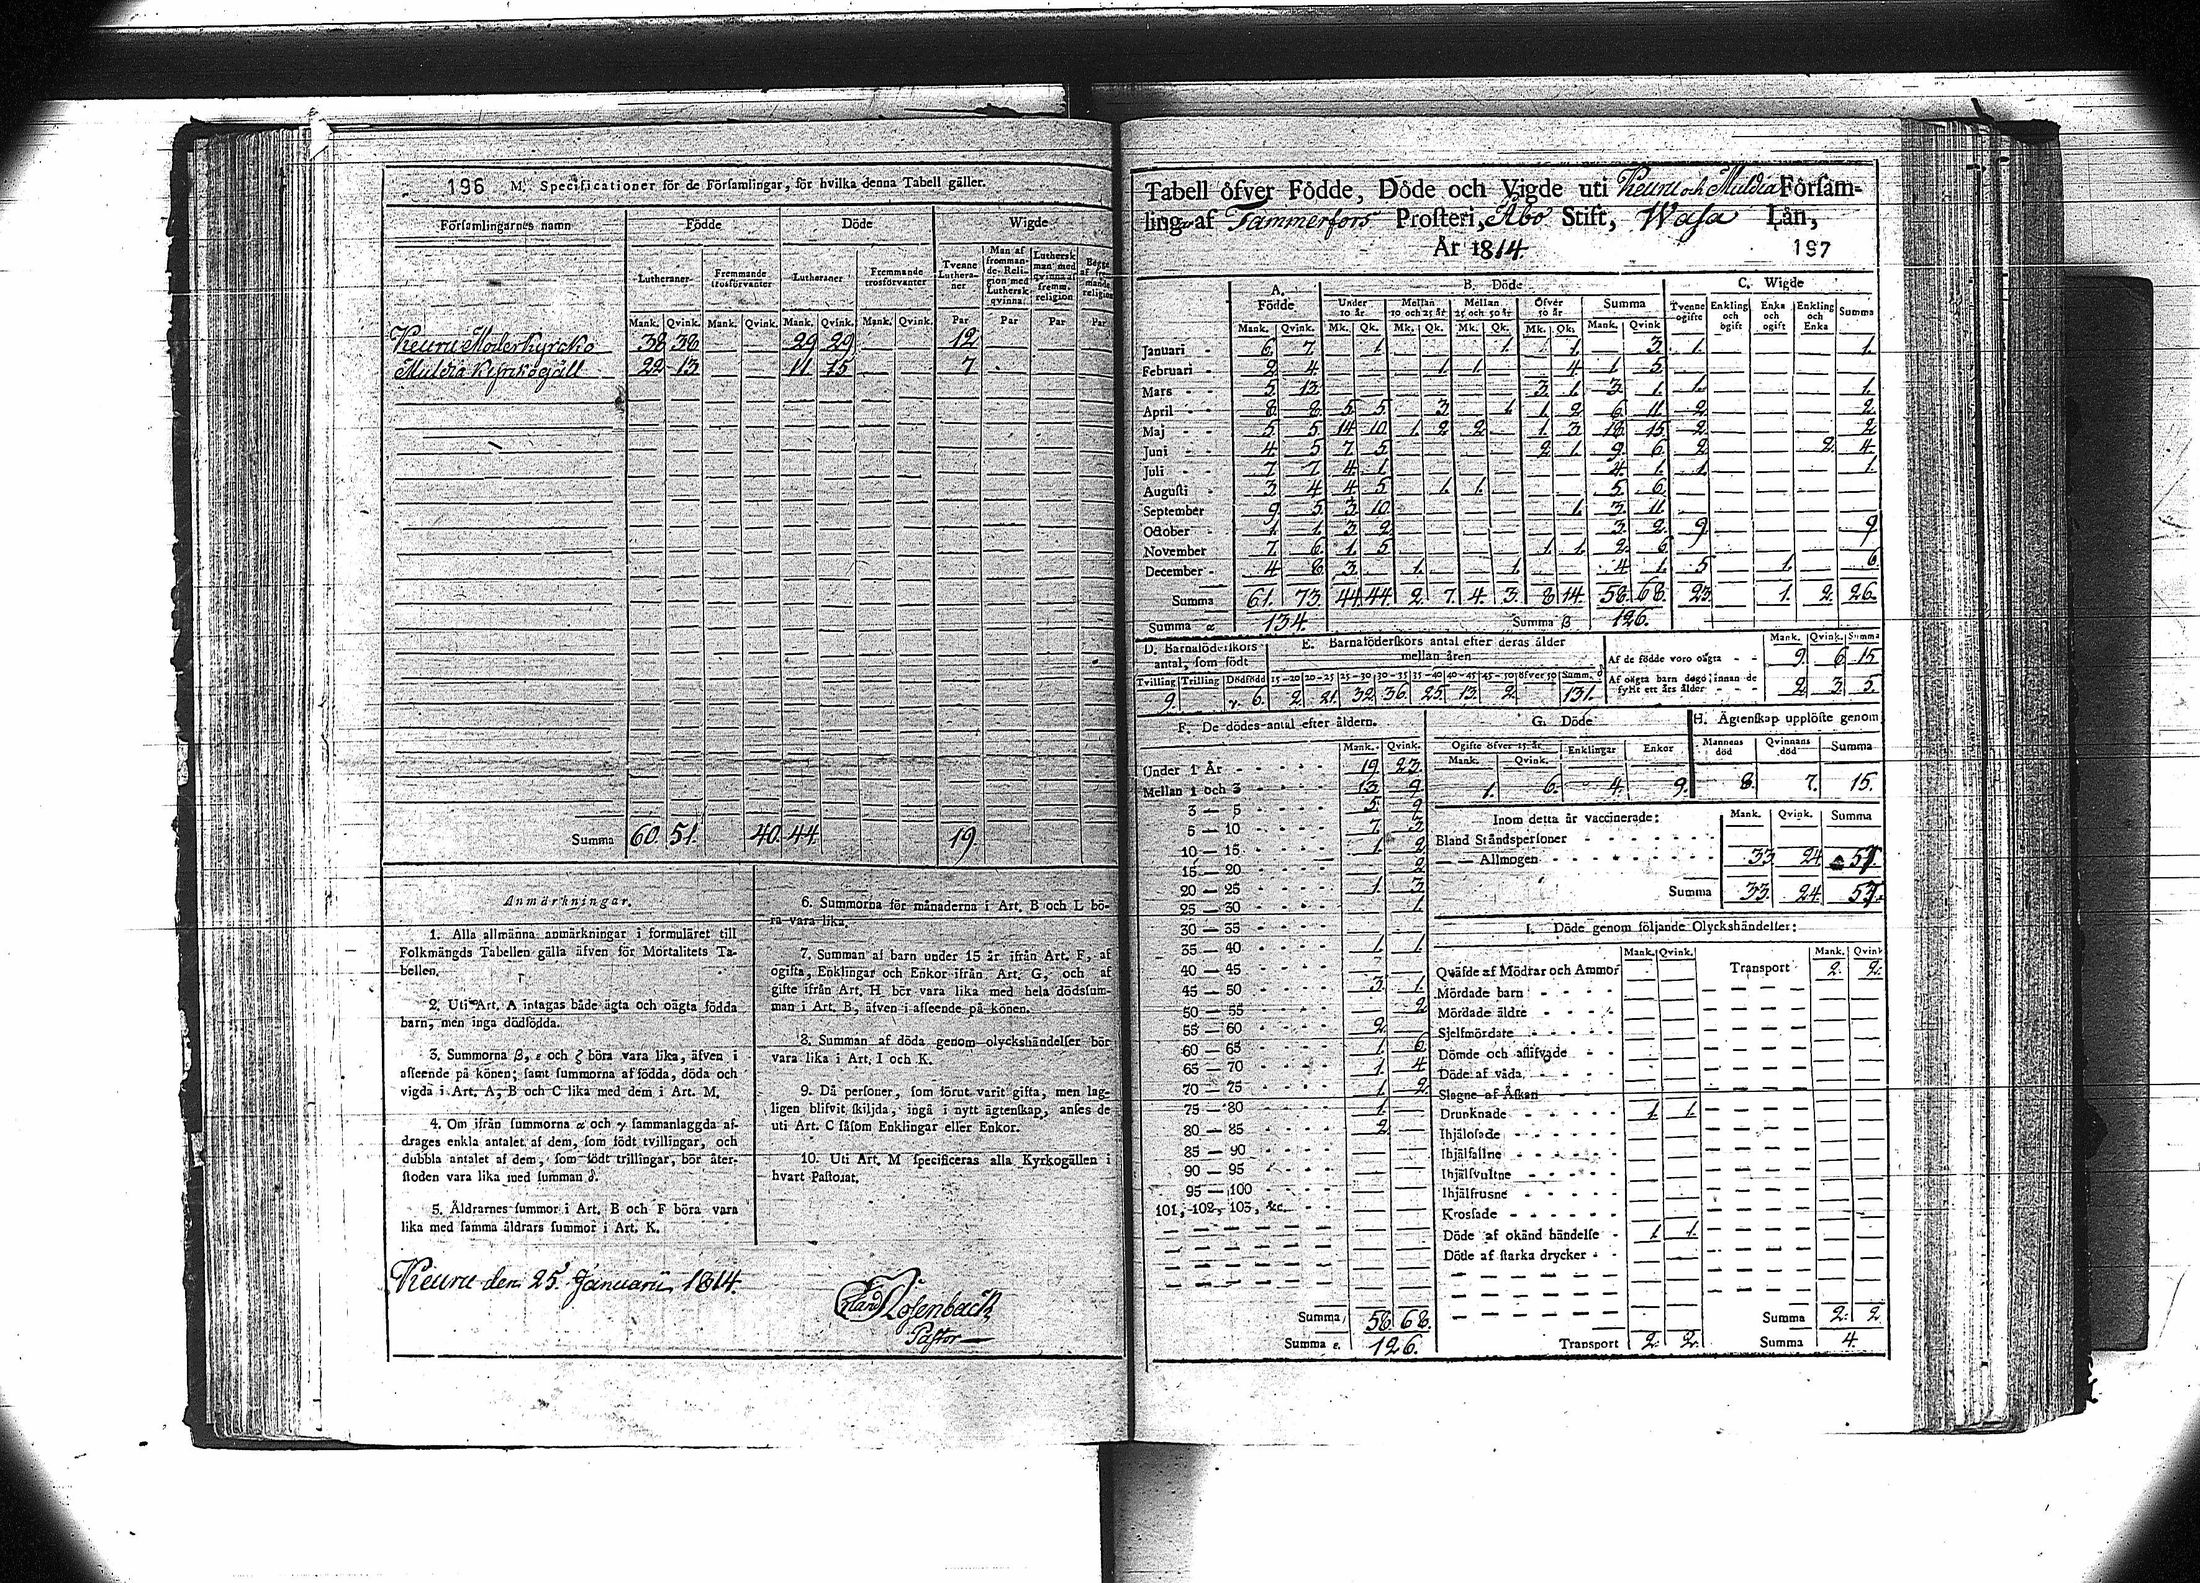 196 M. Specificationer för de Församlingar, för hvilka denna Tabell gäller.
Församlingarnes namn Födde Döde Wigde
Lutheraner Fremmande trosförvanter Lutheraner Fremmande trosförvanter Tvenne Lutheraner Man af fremmande Religion med Luthersk qvinna Luthersk man med qvinna af fremm. religion Begge af fremmande religion
Mank. Qvink. Mank. Qvink. Mank. Qvink. Mank. Qvink. Par Par Par Par
Keuru Moderkyrcko 38 38 29 29 12
Muldia Kyrkogäll 22 13 11 15 7
Summa 60. 51. 40. 44. 19.
Anmärkningar.
1. Alla allmänna anmärkningar i formuläret till
Folkmängds Tabellen gälla äfven för Mortalitets Ta-
bellen.
2. Uti Art. A intagas både ägta och oägta födda
barn, men inga dödfödda.
3. Summorna β, ε och ζ böra vara lika, äfven i
afseende på könen; samt summorna af födda, döda och
vigda i Art. A, B och C lika med dem i Art. M.
4. Om ifrån summorna α och γ sammanlaggda af-
drages enkla antalet af dem, som födt tvillingar, och
dubbla antalet af dem, som födt trillingar, bör åter-
stoden vara lika med summan δ.
5. Åldrarnes summor i Art. B och F böra vara
lika med samma åldrars summor i Art. K.
6. Summorna för månaderna i Art. B och L bö-
ra vara lika.
7. Summan af barn under 15 år ifrån Art. F, af
ogifta, Enklingar och Enkor ifrån Art. G, och af
gifte ifrån Art. H bör vara lika med hela dödsum-
man i Art. B, äfven i afseende på könen.
8. Summan af döda genom olyckshändelser bör
vara lika i Art. I och K.
9. Då personer, som förut varit gifta, men lag-
ligen blifvit skiljda, ingå i nytt ägtenskap, anses de
uti Art. C såsom Enklingar eller Enkor.
10. Uti Art. M specificeras alla Kyrkogällen i
hvart Pastorat.
Keuru den 25. Januarii 1814.
Erland Rosenback
Pastor
Tabell öfver Födde, Döde och Vigde uti Keuru och Muldia Församling
af Tammerfors Prosteri, Åbo Stift, Wasa Län,
År 1814. 197
A. Födde B. Döde C. Wigde
Under 10 år Mellan 10 och 25 år Mellan 25 och 50 år Öfver 50 år Summa Tvenne ogifte Enkling och ogift Enka och ogift Enkling och Enka Summa
Mank. Qvink. Mk. Qk. Mk. Qk. Mk. Qk. Mk. Qk. Mank. Qvink
Januari 6. 7. 1. 1. 1. 3. 1. 1.
Februari 2 4 1 1. 4 1 5
Mars 5 13 3. 1. 3. 1. 1. 1.
April 8. 8. 5 5 3 1. 1 2 6 11 2 2.
Maj 5 5 14 10 1. 2 2 1. 3 18 15 2 2
Juni 4 5 7 5 2 1. 9. 6. 2 2. 4
Juli 7 7 4 1 4 1. 1 1
Augusti 3 4 4 5 1. 1. 5 6
September 9 5 3 10 1. 3 11
October 1 1 3 2 3 2. 9 9
November 7 6 1. 5 1 1. 2 6
December 4 8 3 1. 1. 4 1. 5 1. 6
Summa 61. 73. 44. 44. 2. 7. 4. 3. 8 14. 58. 68. 23 1. 2. 26.
Summa α 134. Summa β 126.
D. Barnaföderskors antal, som födt
Tvilling Trilling Dödfödd
9. γ 6.
E. Barnaföderskors antal efter deras ålder mellan åren
15-20 20-25 25-30 30-35 35-40 40-45 45-50 öfver 50 Summ. δ
2. 21. 32. 36. 25. 13. 2. 131.
Mank. Qvink. Summa
Af de födde voro oägta 9. 6 15
Af oägta barn dogo innan de fyllt ett års ålder 2 3 5.
F. De dödes antal efter åldern.
Mank. Qvink.
Under 1 År 19 23
Mellan 1 och 3 13 9
3 — 5 5 9
5 — 10 7 3
10 — 15 1. 2
15 — 20 2
20 — 25 1. 3
25 — 30 1.
30 — 35
35 — 40 1. 1.
40 — 45
45 — 50 3 1.
50 — 55 2
55 — 60 2
60 — 65 1. 6
65 — 70 1. 4
70 — 75 1. 2.
75 — 80 1.
80 — 85 2
85 — 90
90 — 95
95 — 100
101, 102, 103, &c.
Summa 58 68.
Summa ε. 126.
G. Döde
Ogifte öfver 15 år Enklingar Enkor
Mank. Qvink.
1. 6. 4. 9.
H. Ägtenskap upplöste genom
Mannens död Qvinnans död Summa
8. 7. 15.
Inom detta år vaccinerade: Mank. Qvink. Summa
Bland Ståndspersoner
— — Allmogen 33 24 57.
Summa 33. 24. 57.
I. Döde genom följande Olyckshändelser:
Mank. Qvink. Mank. Qvink
Qväfde af Mödrar och Ammor Transport 2. 2.
Mördade barn
Mördade äldre
Sjelfmördare
Dömde och aflifvade
Döde af våda
Slagne af Åskan
Drunknade 1. 1.
Ihjälosade
Ihjälfallne
Ihjälsvultne
Ihjälfrusne
Krossade
Döde af okänd händelse 1. 1.
Döde af starka drycker
Summa 2. 2
Transport 2. 2. Summa 4.